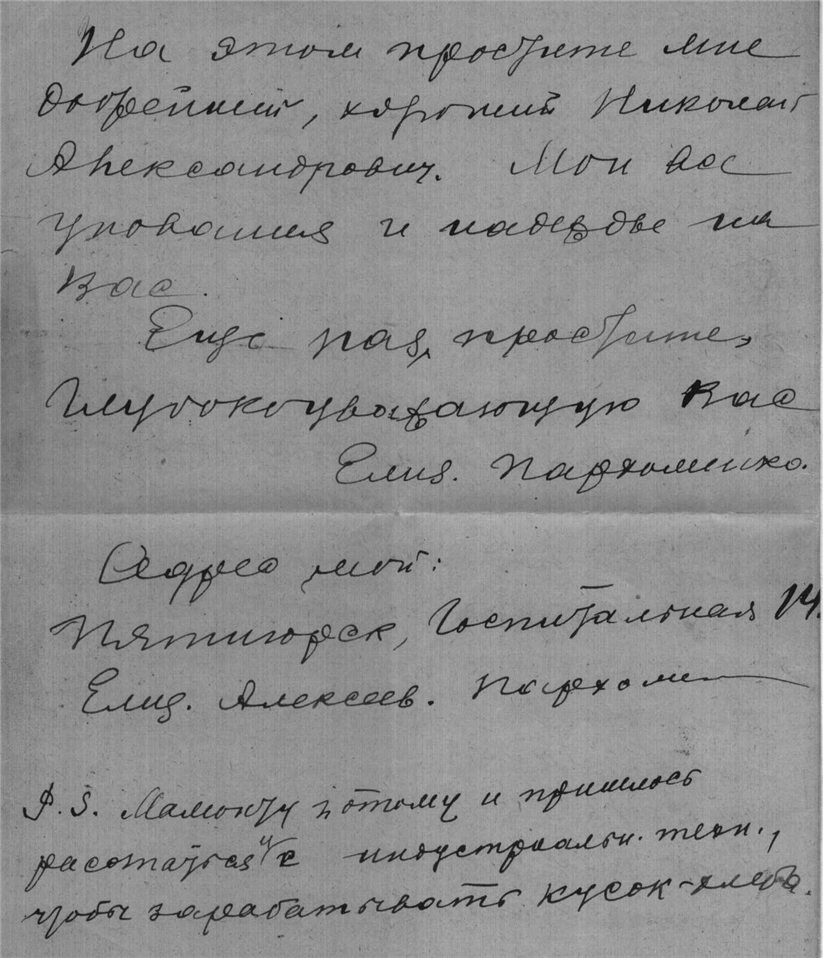 На этом простите мне
добрейший, хороший Николай
Александрович. Мои все
упования и надежды на
Вас.
Еще раз, простите,
Глубокоуважающую Вас
Елиз. Пархоменко.
Адрес мой:
Пятигорск, Госпитальная 14.
Елиз. Алексеев. Пархомен
P.S. потому и пришлось
расстаться с индустриальн. техн.,
чтобы зарабатывать кусок хлеба.